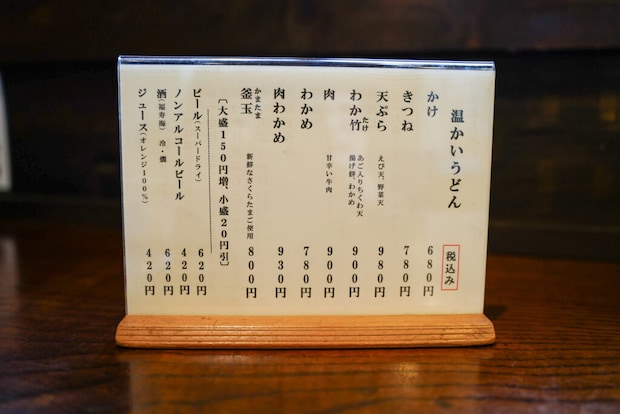 温かいうどん 税込み
かけ 680円
きつね 780円
天ぷら えび天、野菜天 980円
わか竹 たけ あご入りちくわ天 揚げ餅、わかめ 900円
肉 甘辛い牛肉 900円
わかめ 780円
肉わかめ 930円
釜玉 かまたま 新鮮なさくらたまご使用 800円
〔大盛150円増、小盛20円引〕
ビール(スーパードライ) 620円
ノンアルコールビール 420円
酒(福寿海) 冷・燗 620円
ジュース(オレンジ100%) 420円